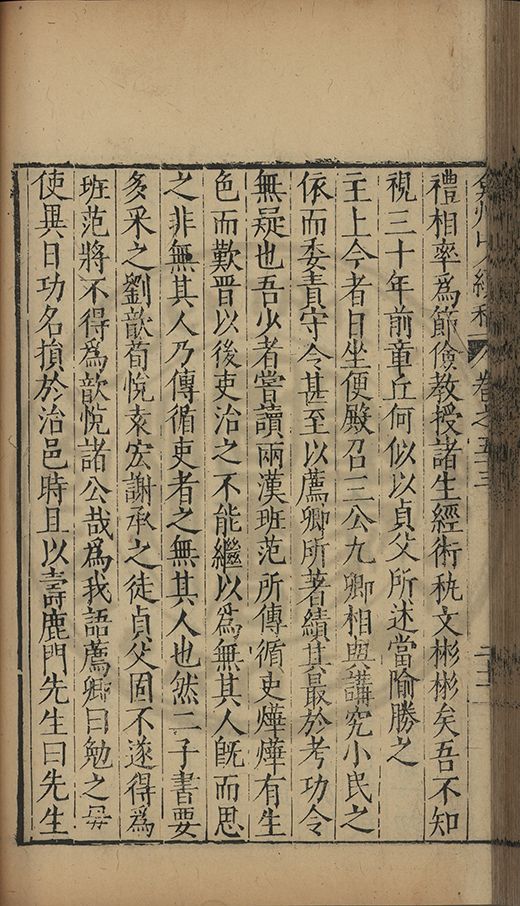 弇州山人續稿 卷之五十三 二十二
禮相率爲節儉教授諸生經術秇文彬彬矣吾不知
視三十年前章丘何似以貞父所述當隃勝之
主上今者日坐便殿召三公九卿相與講究小民之
依而委責守令甚至以薦卿所著績其最於考功令
無疑也吾少者嘗讀兩漢班范所傳循吏燁燁有生
色而歎晋以後吏治之不能繼以爲無其人旣而思
之非無其人乃傳循吏者之無其人也然二子書要
多采之劉歆荀悅袁宏謝承之徒貞父固不遂得爲
班范將不得爲歆悅諸公哉爲我語薦卿曰勉之毋
使異日功名損於治邑時且以壽鹿門先生曰先生